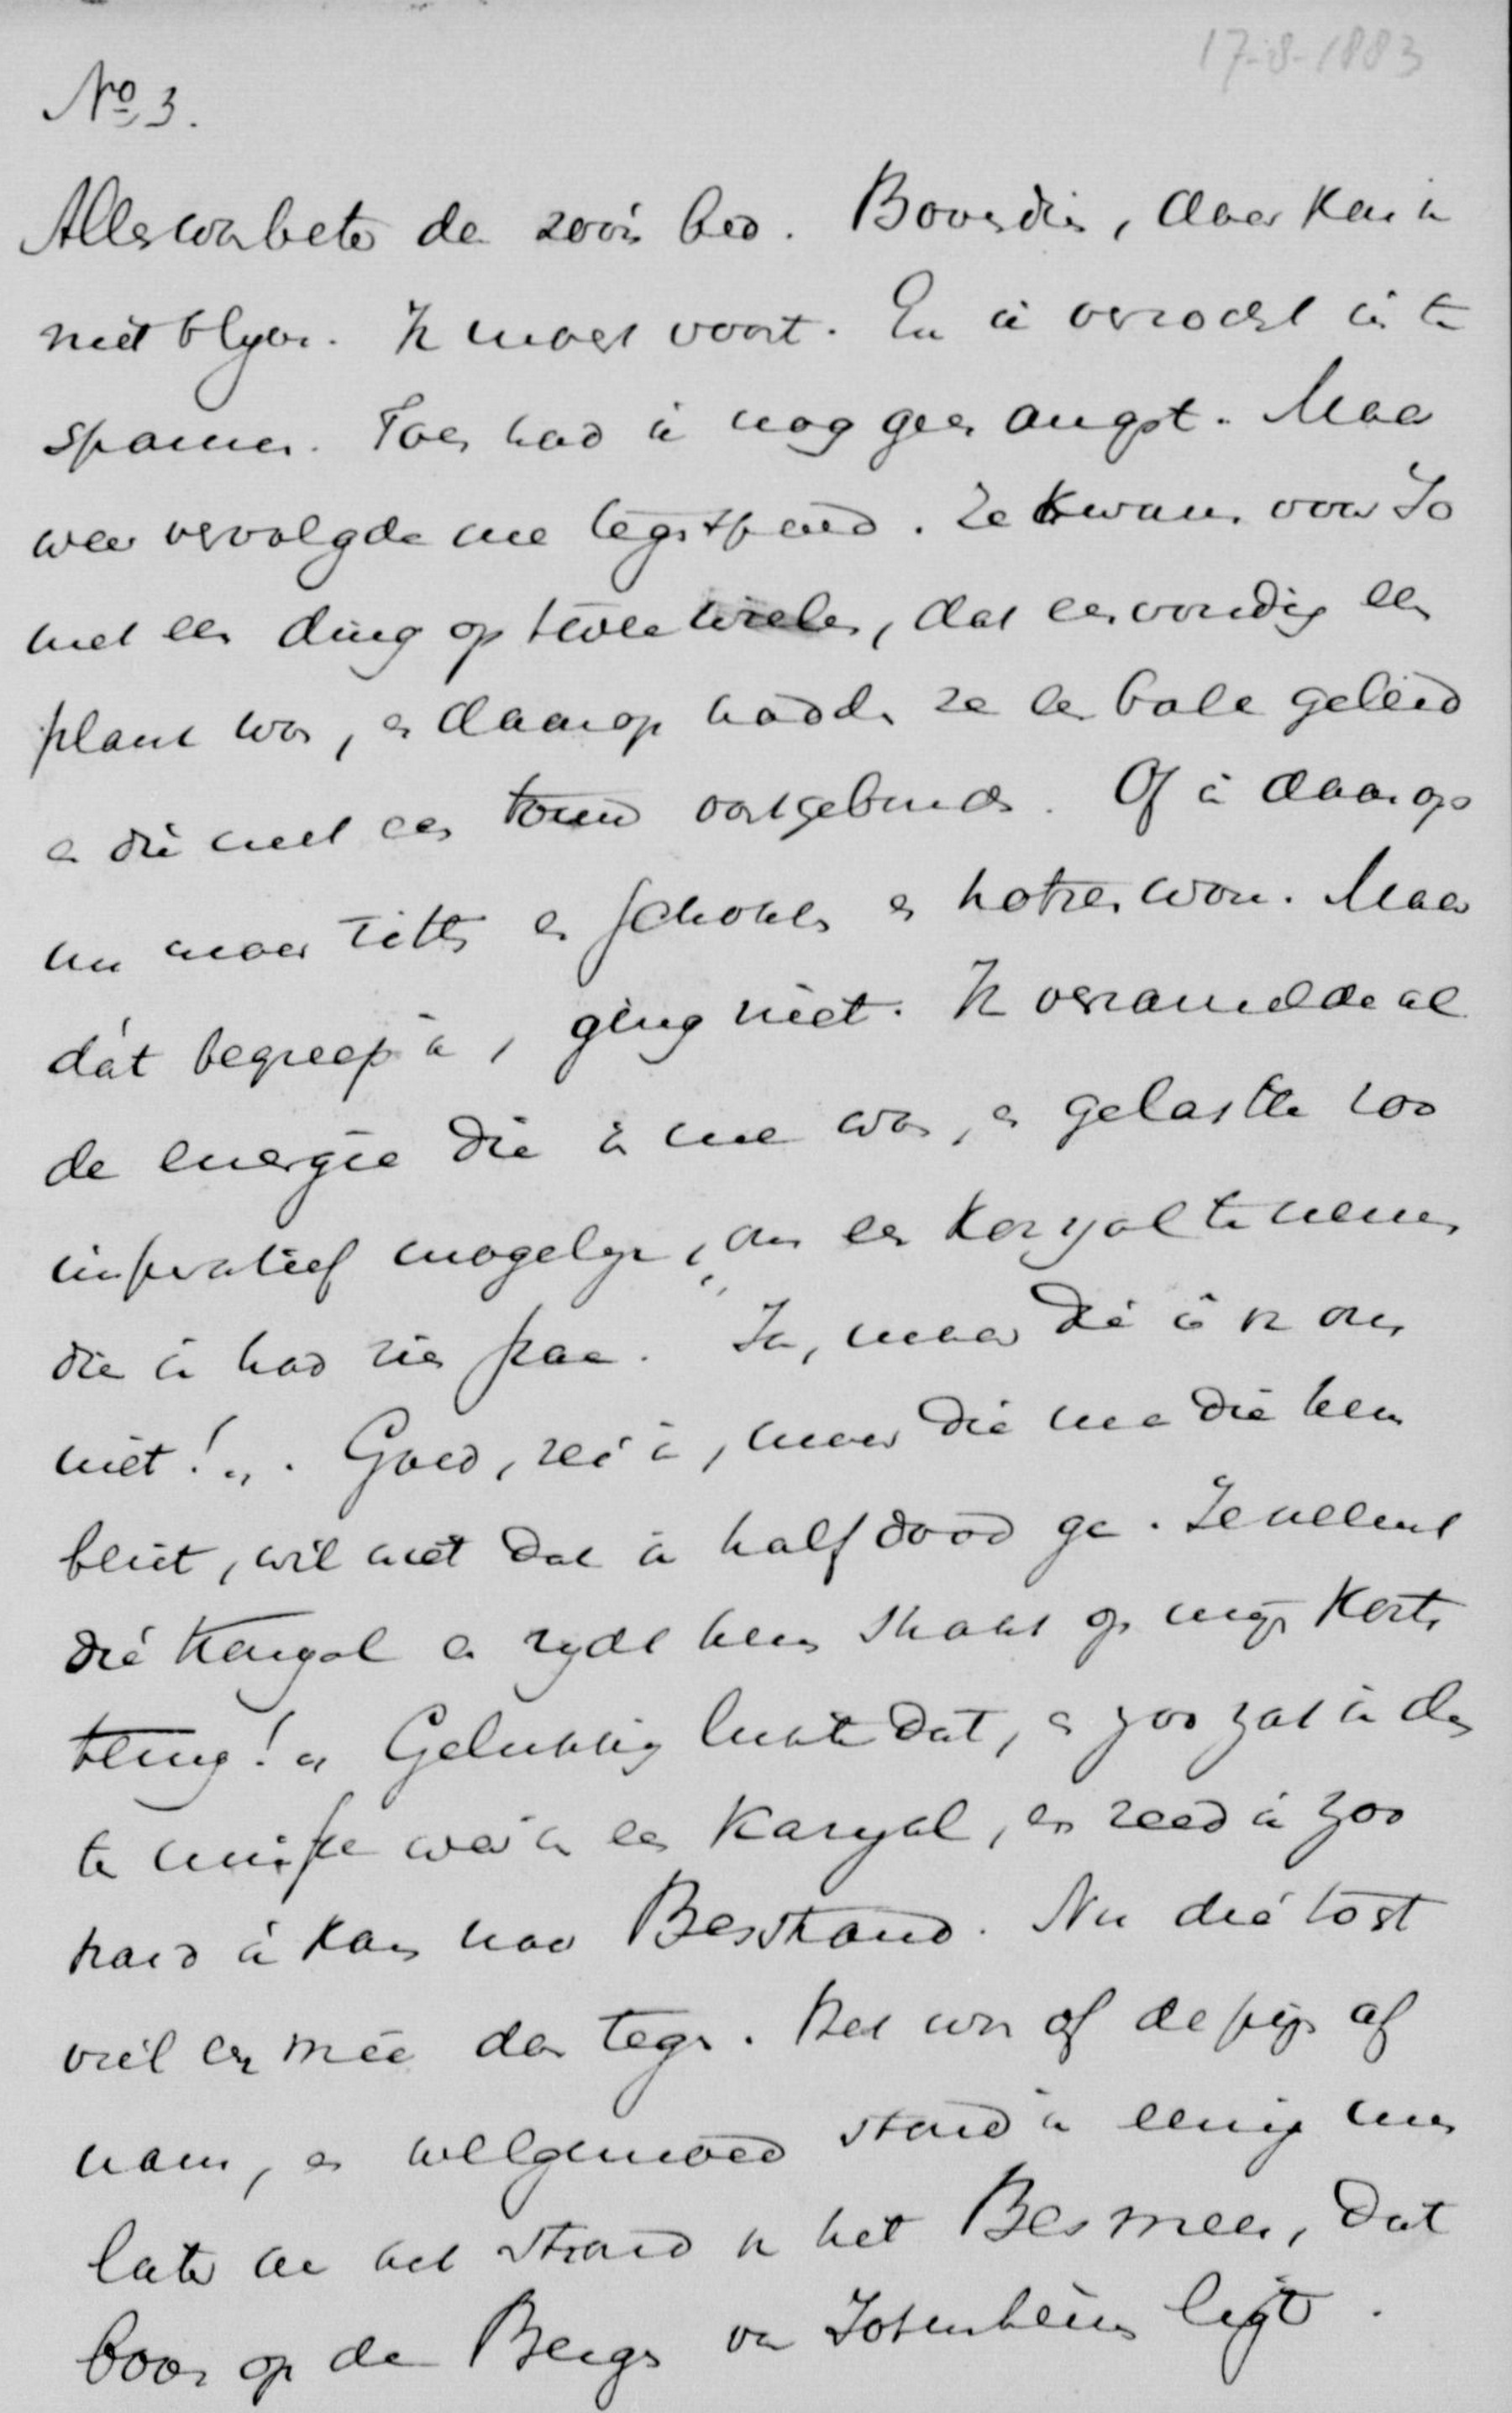 17-8-1883
No 3.
Alles was beter dan zoo'n bed. Bovendien, daar kan ik
niet blyven. Ik moest voort. En ik verzocht in te
spannen. Toen had ik nog geen angst. Maar
weer vervolgde me tegenspoed. Ze kwamen voor
met een ding op twee wielen, dat eenvoudig een
plank was, en daarop hadden ze een bale geleid
en die met een touw vastgebonden. Of ik daarop
nu maar zitten en schokken en hotsen wou. Maar
dát begreep ik, ging niet. Ik verzamelde al
de energie die in me was, en gelastte zoo
imperatief mogelyk, om een Karyol te nemen
die ik had zien staan. "Ja, maar die is van ons
niet!". Goed, zei ik, maar die me die hem
leent, wil niet dat ik half dood ga. Je neemt
dié Karyol en rydt hem straks op myn
terug!" Gelukkig lukte dat, en zoo zat ik dan
ten minste weer in een Karyol, en reed ik zoo
hard ik kan naar Besstrand. Nu dié tocht
viel en mée den tegen. Het was of de pijn af
nam, en welgemoed stond ik eenig uren
later aan het strand van het Besmeer, dat
boven op de Bergen van Jotunheim ligt.